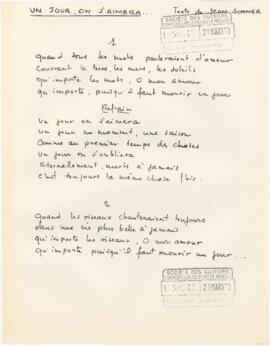 UN JOUR, ON S'AIMERA... Texte de JEAN SOMMER
SOCIÉTÉ DES AUTEURS
29 MARS
1
Quand tous les mots parleraient d'amour
Couvrant la terre, les mers, les soleils
Qu'importe les mots, O mon amour
Qu'importe, puisqu'il faut mourir un jour
Refrain
Un jour on s'aimera
Un jour, un moment, une saison
Comme au premier temps des choses
Un jour on s'oubliera
Eternellement, morts à jamais
C'est toujours la même chose (bis.
2
Quand les oiseaux chanteraient toujours
dans une vie plus belle à jamais
Qu'importe les oiseaux, O mon amour
Qu'importe puisqu'il faut mourir un jour...
SOCIÉTÉ DES AUTEURS
29 MARS